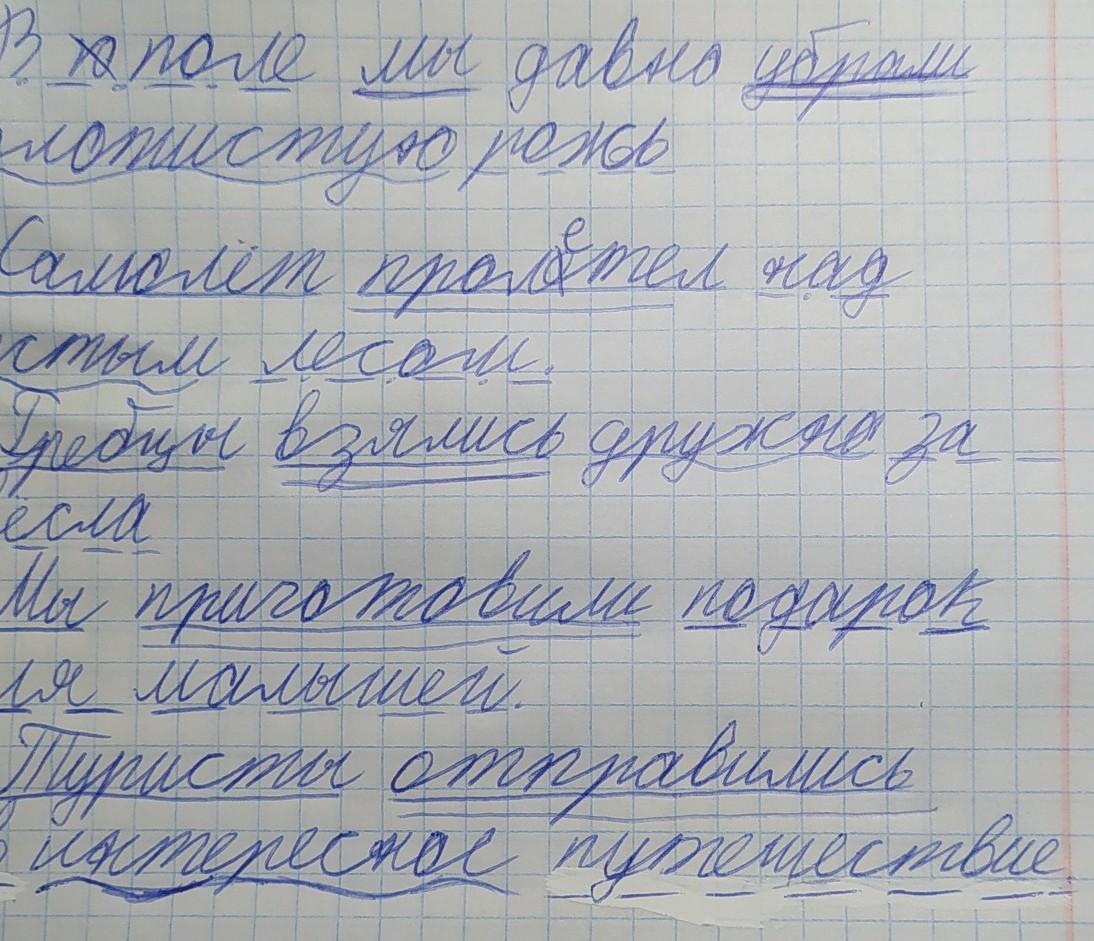 В поле мы давно убрали
лотистую рожь
Самолёт пролетел над
стым лесом.
Гребцы взялись дружно за
ёсла
Мы приготовили подарок
ля малышей.
Туристы отправились
в интересное путешествие